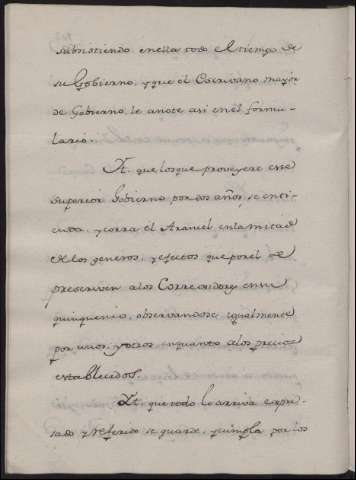 subsistiendo en ella todo el tiempo de
su Gobierno, y que el Escrivano mayor
de Gobierno, le anote asi en el formu-
lario.
It. que los que proveyere este
Superior Gobierno por dos años, se enti-
enda, y corra el Aranzel en la mitad
de los generos, y efectos que por el se
prescriven a los Corregidores en su
quinquenio, observandose igualmente
por unos, y otros en quanto a los precios
establecidos.
It. que todo lo arriva expre-
sado y referido se guarde, y cumpla por los